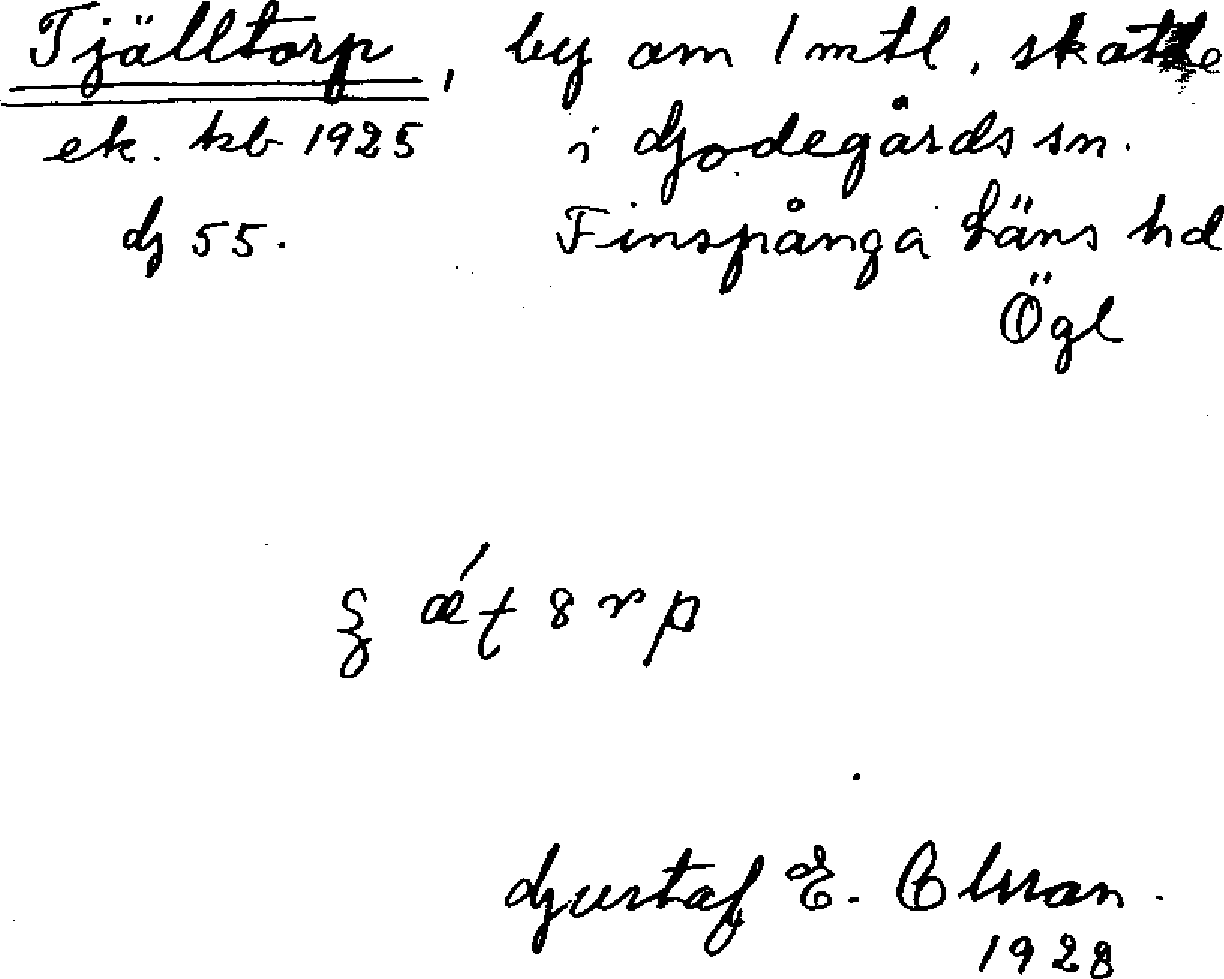 Tjälltorp, by om 1 mtl, skatte
ek. kb 1925 i Godegårds sn.
G 55. Finspånga läns hd
Ögl
Gustaf E. Olsson.
1928